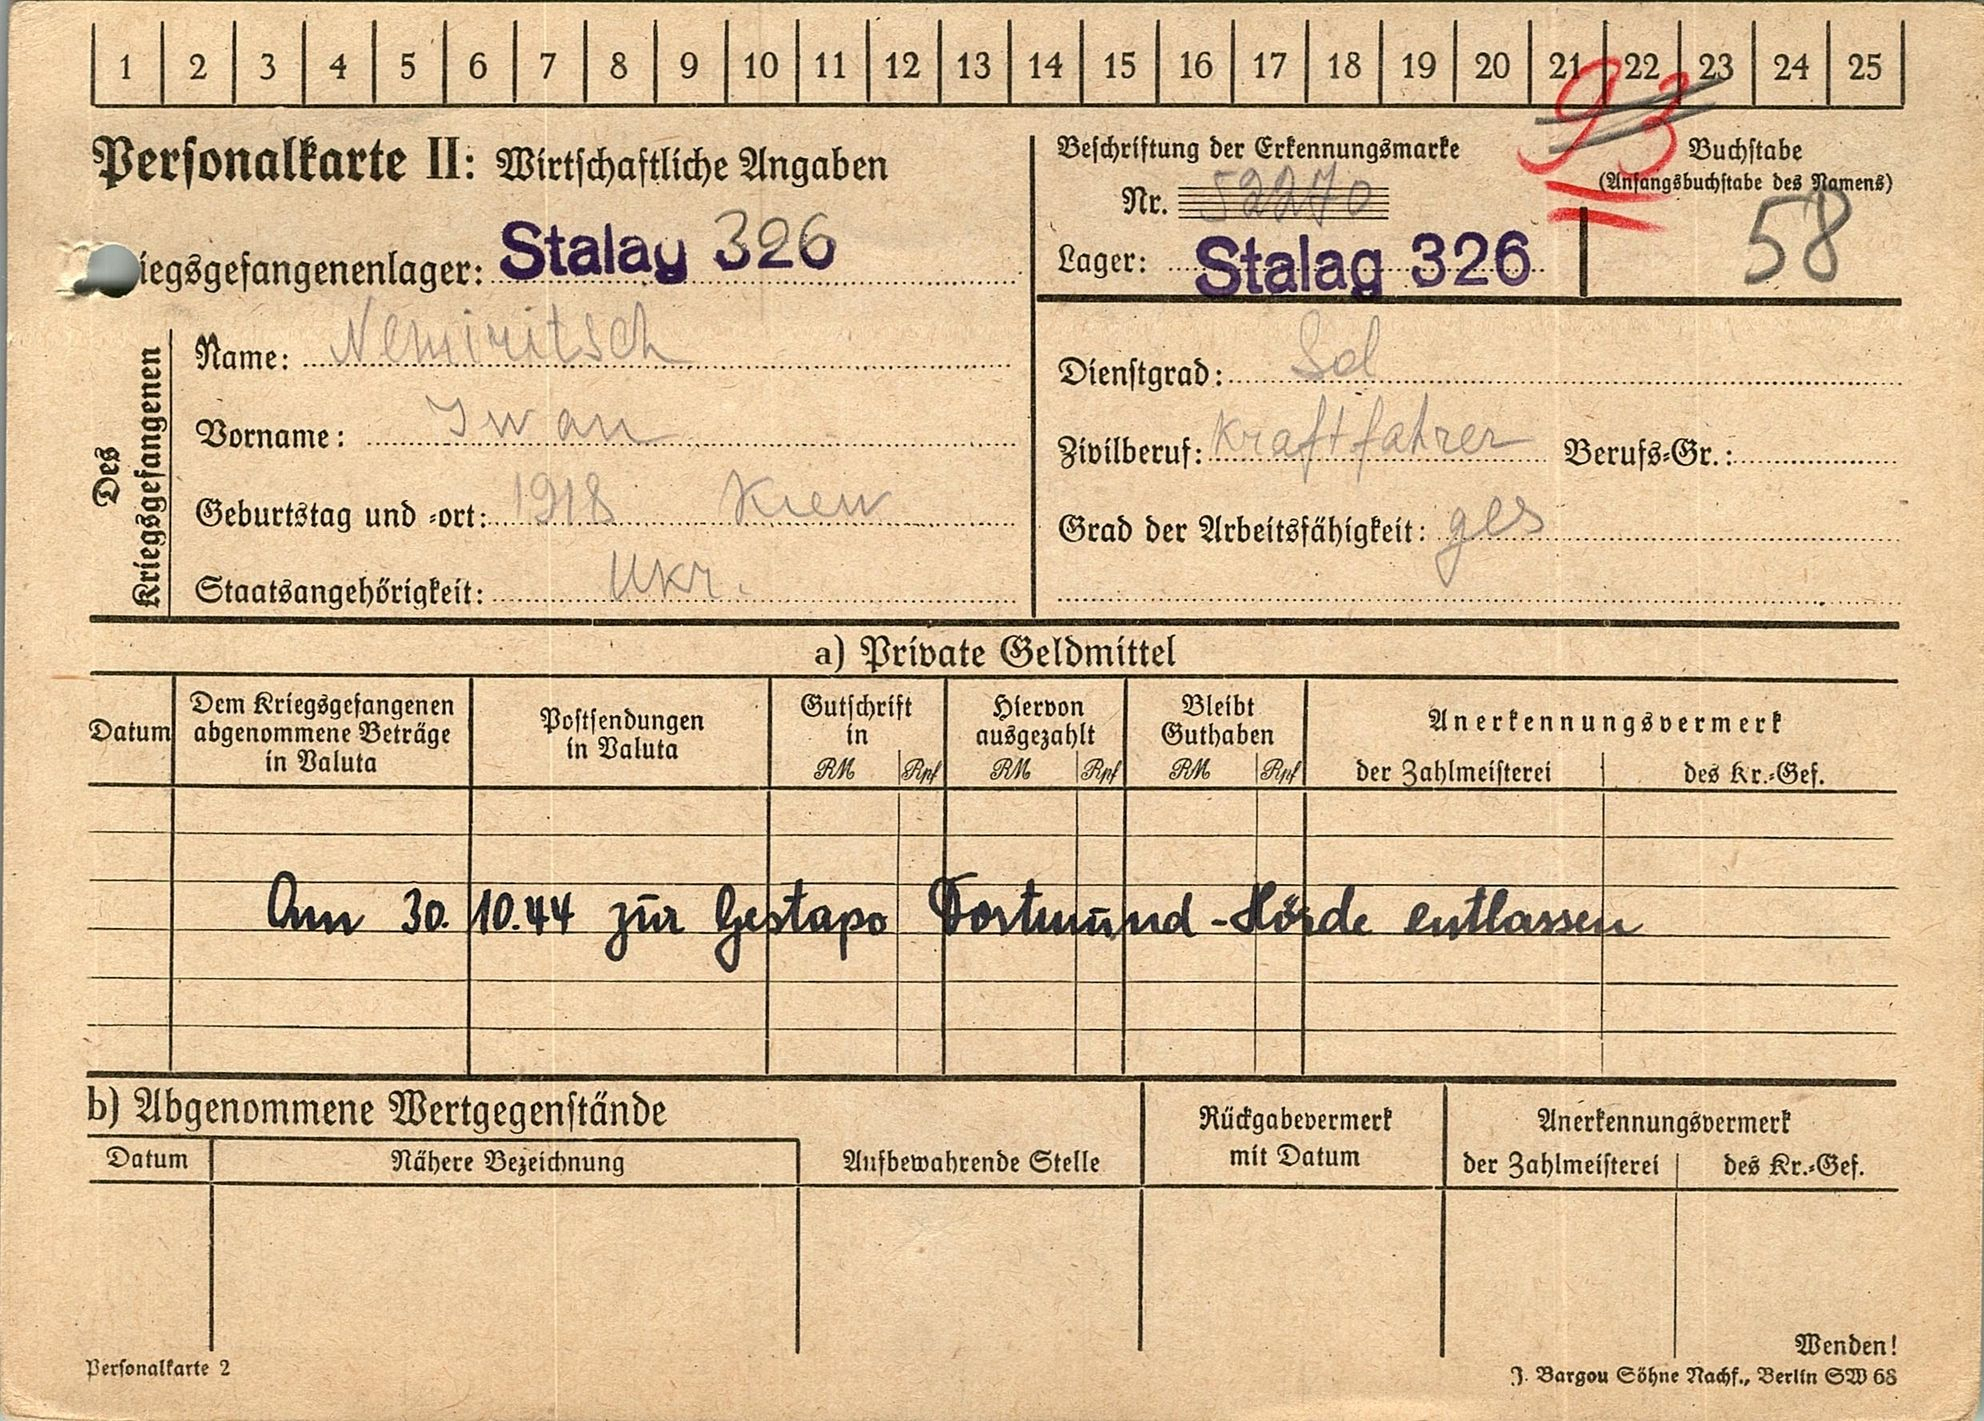 1 2 3 4 5 6 7 8 9 10 11 12 13 14 15 16 17 18 19 20 21 22 23 24 25
93
Personalkarte II: Wirtschaftliche Angaben
iegsgefangenenlager: Stalag 326
Beschriftung der Erkennungsmarke
Nr. 52270
Lager: Stalag 326
Buchstabe
(Anfangsbuchstabe des Namens)
58
Des
Kriegsgefangenen
Name: Nemiritsch
Vorname: Iwan
Geburtstag und -ort: 1918 Kiew
Staatsangehörigkeit: Ukr.
Dienstgrad: Sol
Zivilberuf: Kraftfahrer Berufs-Gr.:
Grad der Arbeitsfähigkeit: ges
a) Private Geldmittel
Datum
Dem Kriegsgefangenen
abgenommene Beträge
in Valuta
Postsendungen
in Valuta
Gutschrift
in
RM Rpf
Hiervon
ausgezahlt
RM Rpf
Bleibt
Guthaben
RM Rpf
Anerkennungsvermerk
der Zahlmeisterei des Kr.-Gef.
Am 30.10.44 zur Gestapo Dortmund-Hörde entlassen
b) Abgenommene Wertgegenstände
Datum Nähere Bezeichnung
Aufbewahrende Stelle
Rückgabevermerk
mit Datum
Anerkennungsvermerk
der Zahlmeisterei des Kr.-Gef.
Wenden!
Personalkarte 2
J. Bargou Söhne Nachf., Berlin SW 68